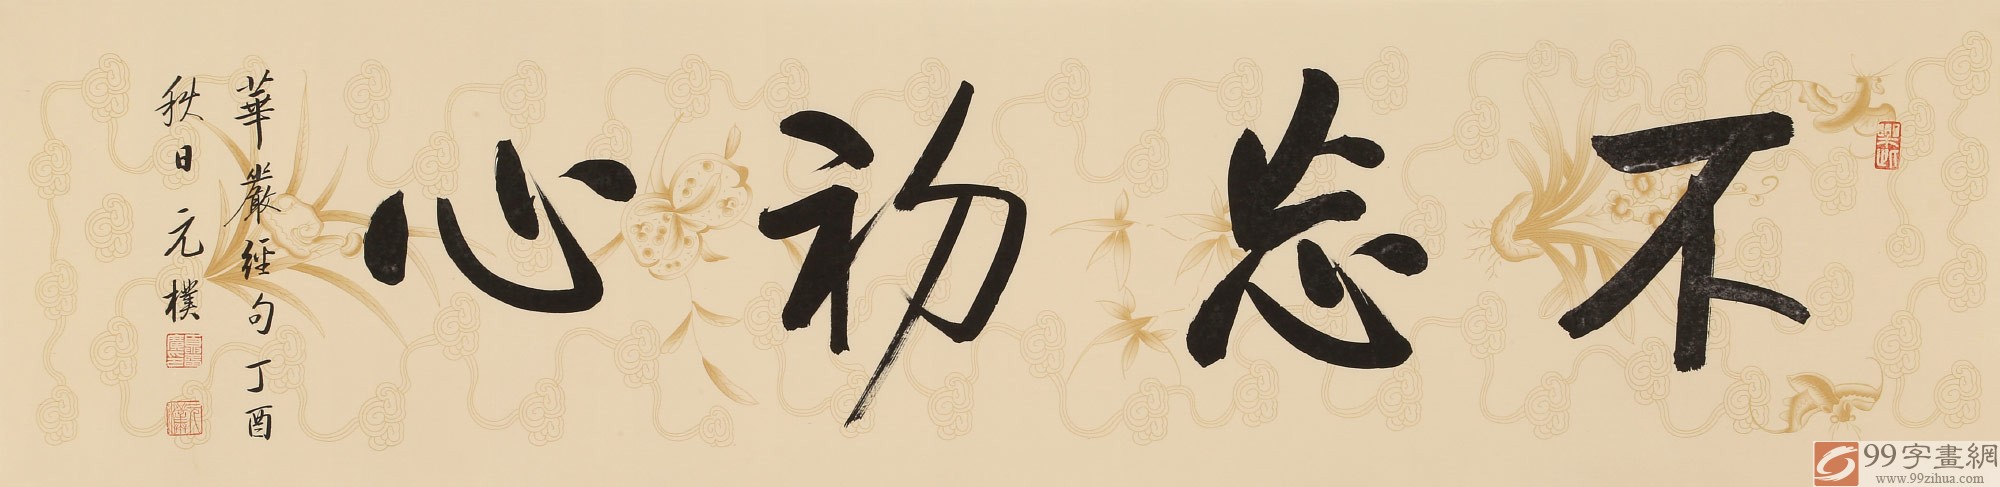 不忘初心
華嚴經句丁酉
秋日元樸
99字畫網
www.99zihua.com